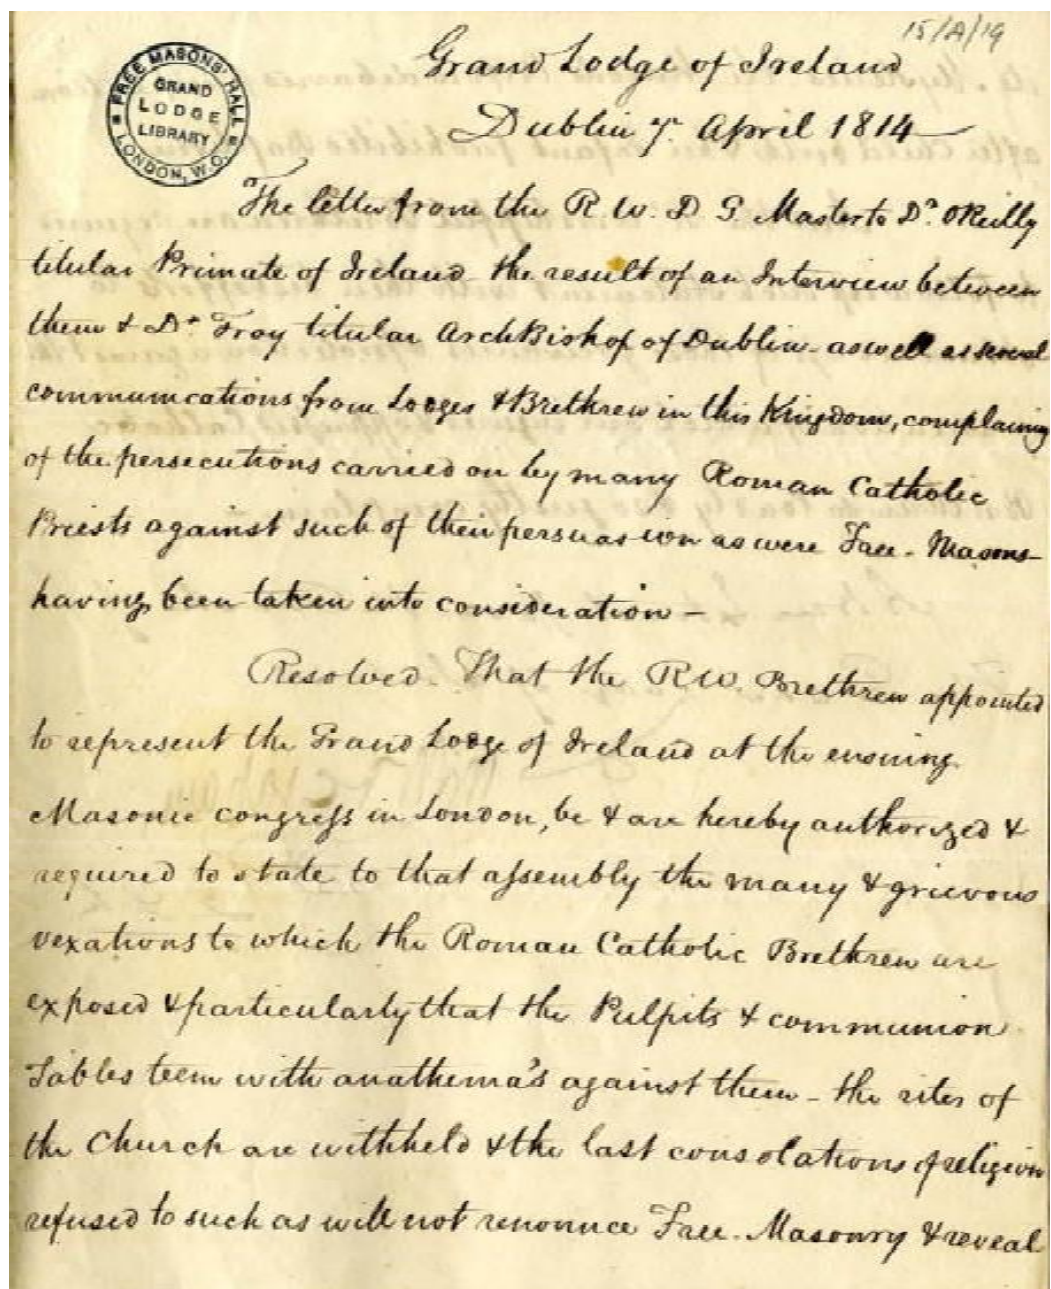 15/A/19
FREE MASONS' HALL
LONDON, W.C.
GRAND
LODGE
LIBRARY
Grand Lodge of Ireland
Dublin 7th April 1814
The letter from the R. W. D G Master to Dr OReilly
titular Primate of Ireland the result of an Interview between
them & Dr Troy titular ArchBishop of Dublin - as well as several
communications from Lodges & Brethren in this Kingdom, complaining
of the persecutions carried on by many Roman Catholic
Priests against such of their persuasion as were Free-Masons
having been taken into consideration -
Resolved. That the R.W. Brethren appointed
to represent the Grand Lodge of Ireland at the ensuing
Masonic congress in London, be & are hereby authorized &
required to state to that assembly the many & grievous
vexations to which the Roman Catholic Brethren are
exposed & particularly that the Pulpits & communion
Tables teem with anathema's against them - the rites of
the Church are withheld & the last consolations of religion
refused to such as will not renounce Free-Masonry & reveal